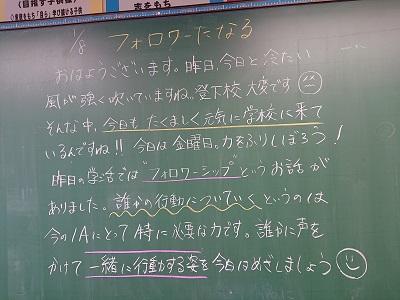 (目指す子供像)
志をもち
1/8 フォロワーたなる
おはようございます。昨日、今日と冷たい
風が強く吹いていますね。登下校大変です
そんな中、今日もたくましく元気に学校に来て
いるんですね!!今日は金曜日。力をふりしぼろう!
昨日の学活では“フォロワーシップ”というお話が
ありました。誰かの行動についていくというのは
今の1Aにとって特に必要な力です。誰かに声を
かけて一緒に行動する姿を今日はめざしましょう